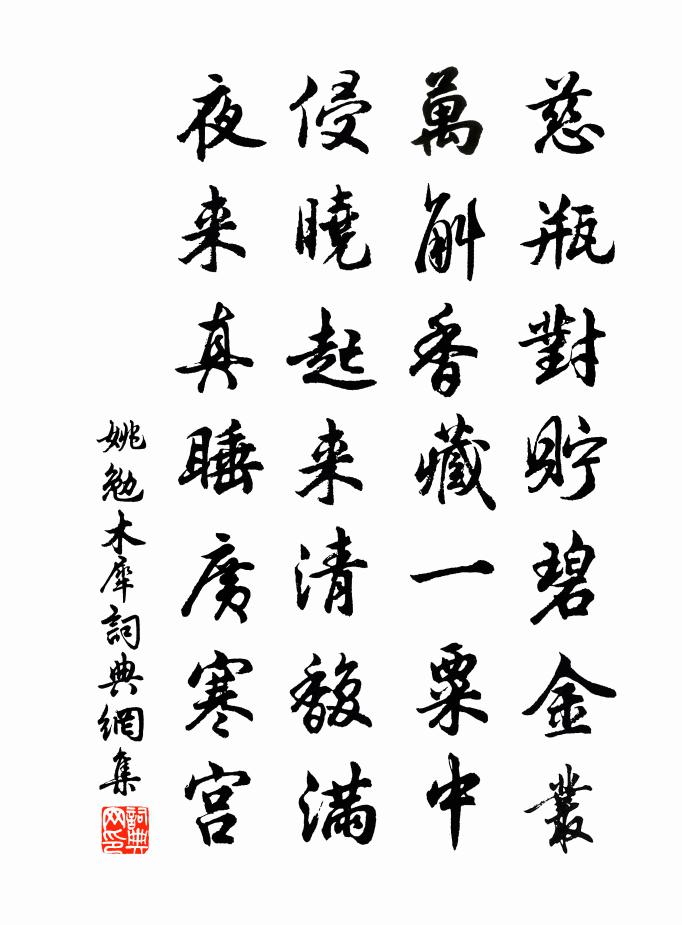 慈瓶對貯碧金叢
萬斛香藏一粟中
侵曉起来清馥滿
夜来真睡廣寒宫
姚勉木犀詞典網集
詞典网印